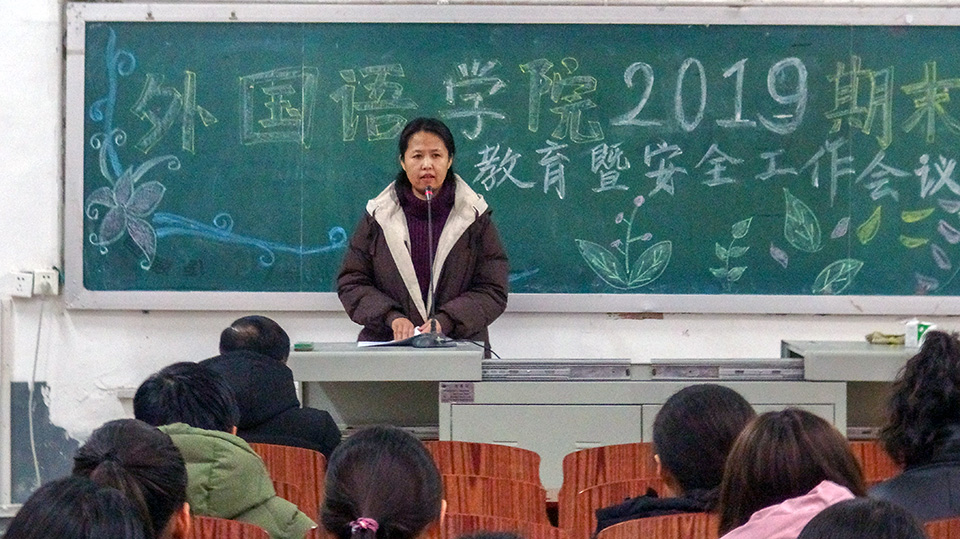 外国语学院2019期末
教育暨安全工作会议